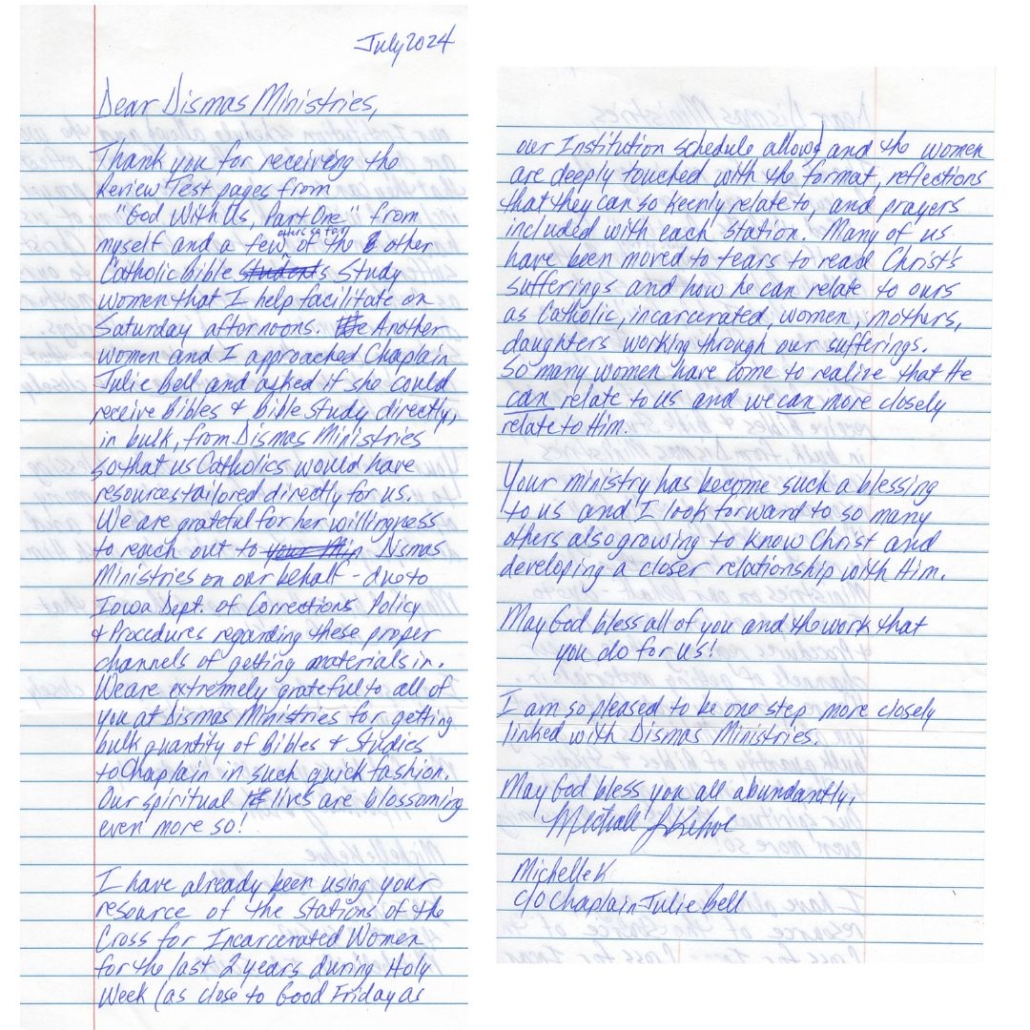 July 2024
Dear Dismas Ministries,
Thank you for receiving the
Review Test pages from
"God With Us, Part One" from
myself and a few of the other
Catholic Bible Study
women that I help facilitate on
Saturday afternoons. Another
women and I approached Chaplain
Julie Bell and asked if she could
receive Bibles & Bible Study directly,
in bulk, from Dismas Ministries
so that us Catholics would have
resources tailored directly for us.
We are grateful for her willingness
to reach out to Dismas
Ministries on our behalf - due to
Iowa Dept. of Corrections Policy
& Procedures regarding these proper
channels of getting materials in.
We are extremely grateful to all of
you at Dismas Ministries for getting
bulk quantity of Bibles & Studies
to Chaplain in such quick fashion.
Our spiritual lives are blossoming
even more so!
I have already been using your
resource of the Stations of the
Cross for Incarcerated Women
for the last 2 years during Holy
Week (as close to Good Friday as
our Institution schedule allows) and the women
are deeply touched with the format, reflections
that they can so keenly relate to, and prayers
included with each station. Many of us
have been moved to tears to read Christ's
sufferings and how he can relate to ours
as Catholic, incarcerated, women, mothers,
daughters working through our sufferings.
So many women have come to realize that He
can relate to us and we can more closely
relate to Him.
Your ministry has become such a blessing
to us and I look forward to so many
others also growing to know Christ and
developing a closer relationship with Him.
May God bless all of you and the work that
you do for us!
I am so pleased to be one step more closely
linked with Dismas Ministries.
May God bless you all abundantly,
Michelle K
c/o Chaplain Julie Bell